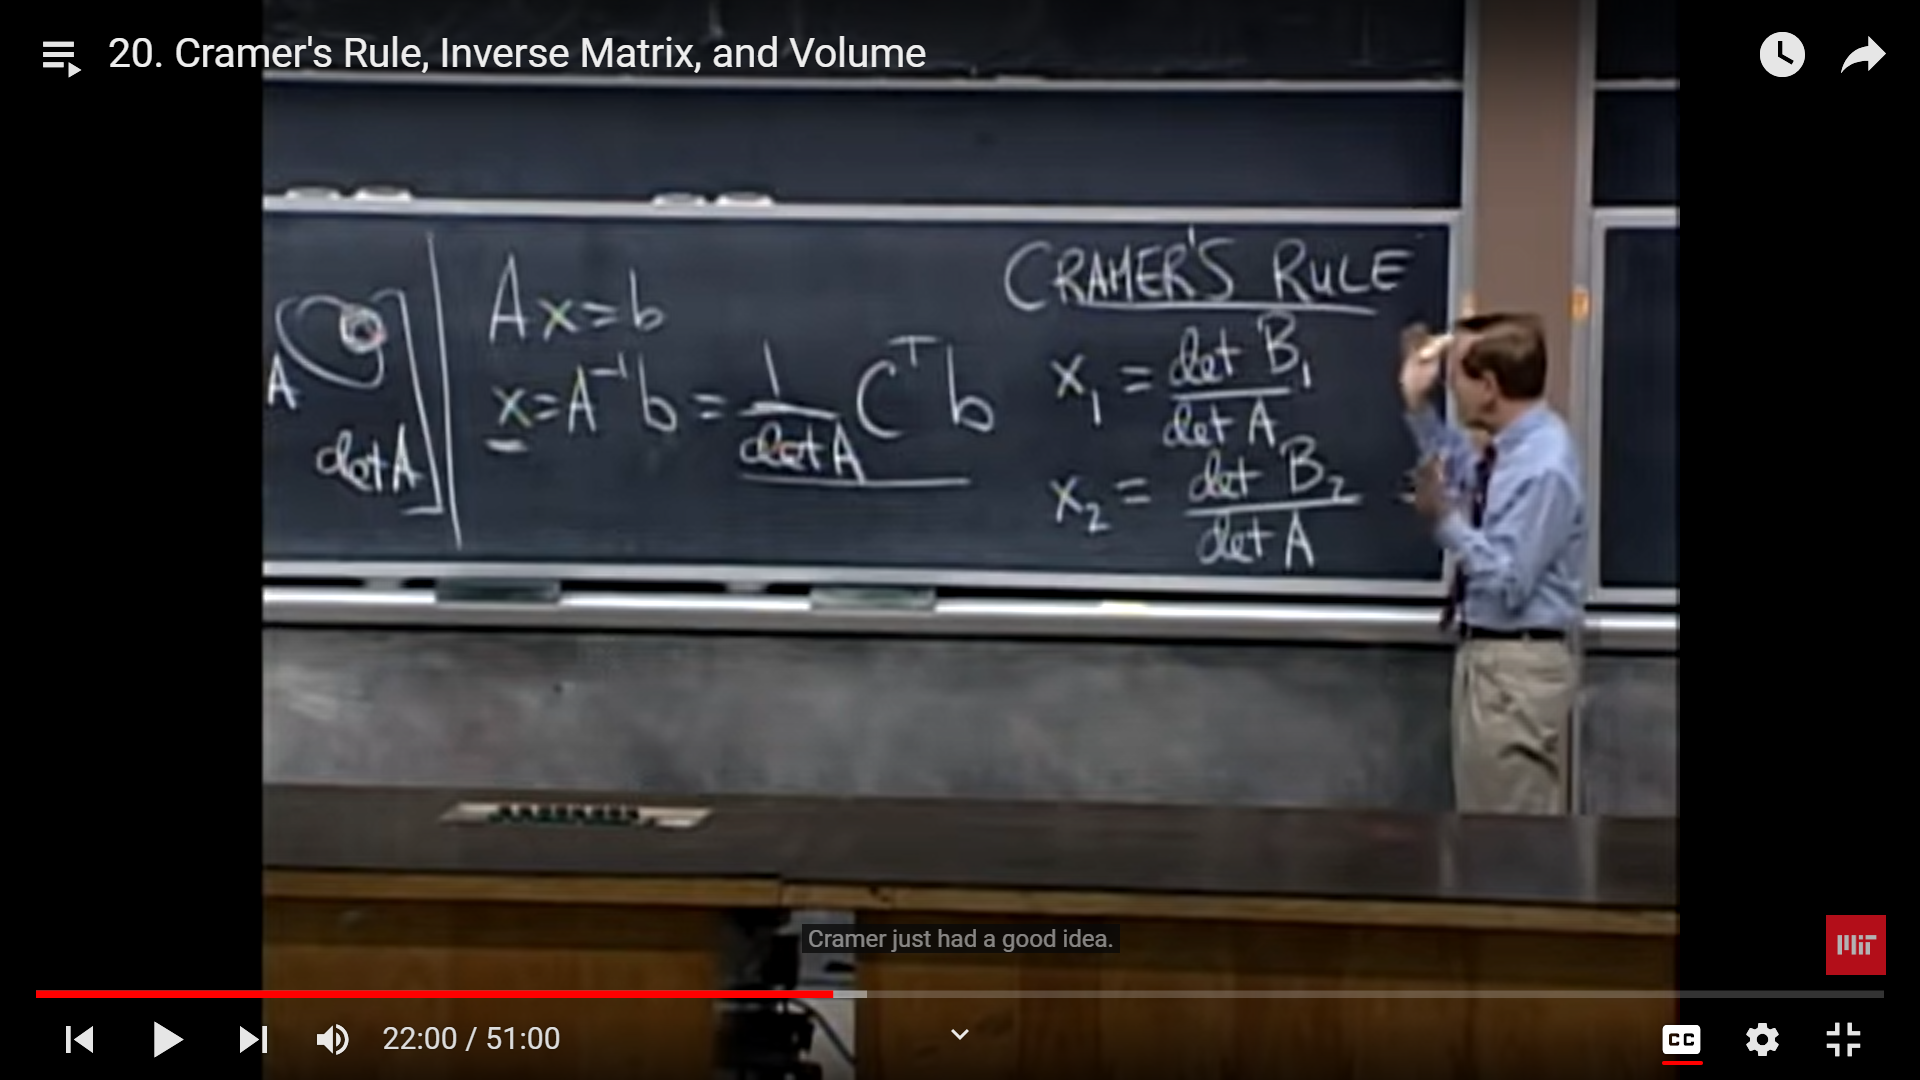 20. Cramer's Rule, Inverse Matrix, and Volume
A
det A
Ax = b
x = A⁻¹b = 1/det A Cᵀb
CRAMER'S RULE
x₁ = det B₁/det A
x₂ = det B₂/det A
Cramer just had a good idea.
MIT
22:00 / 51:00
CC